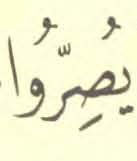 يُصِرُّوا